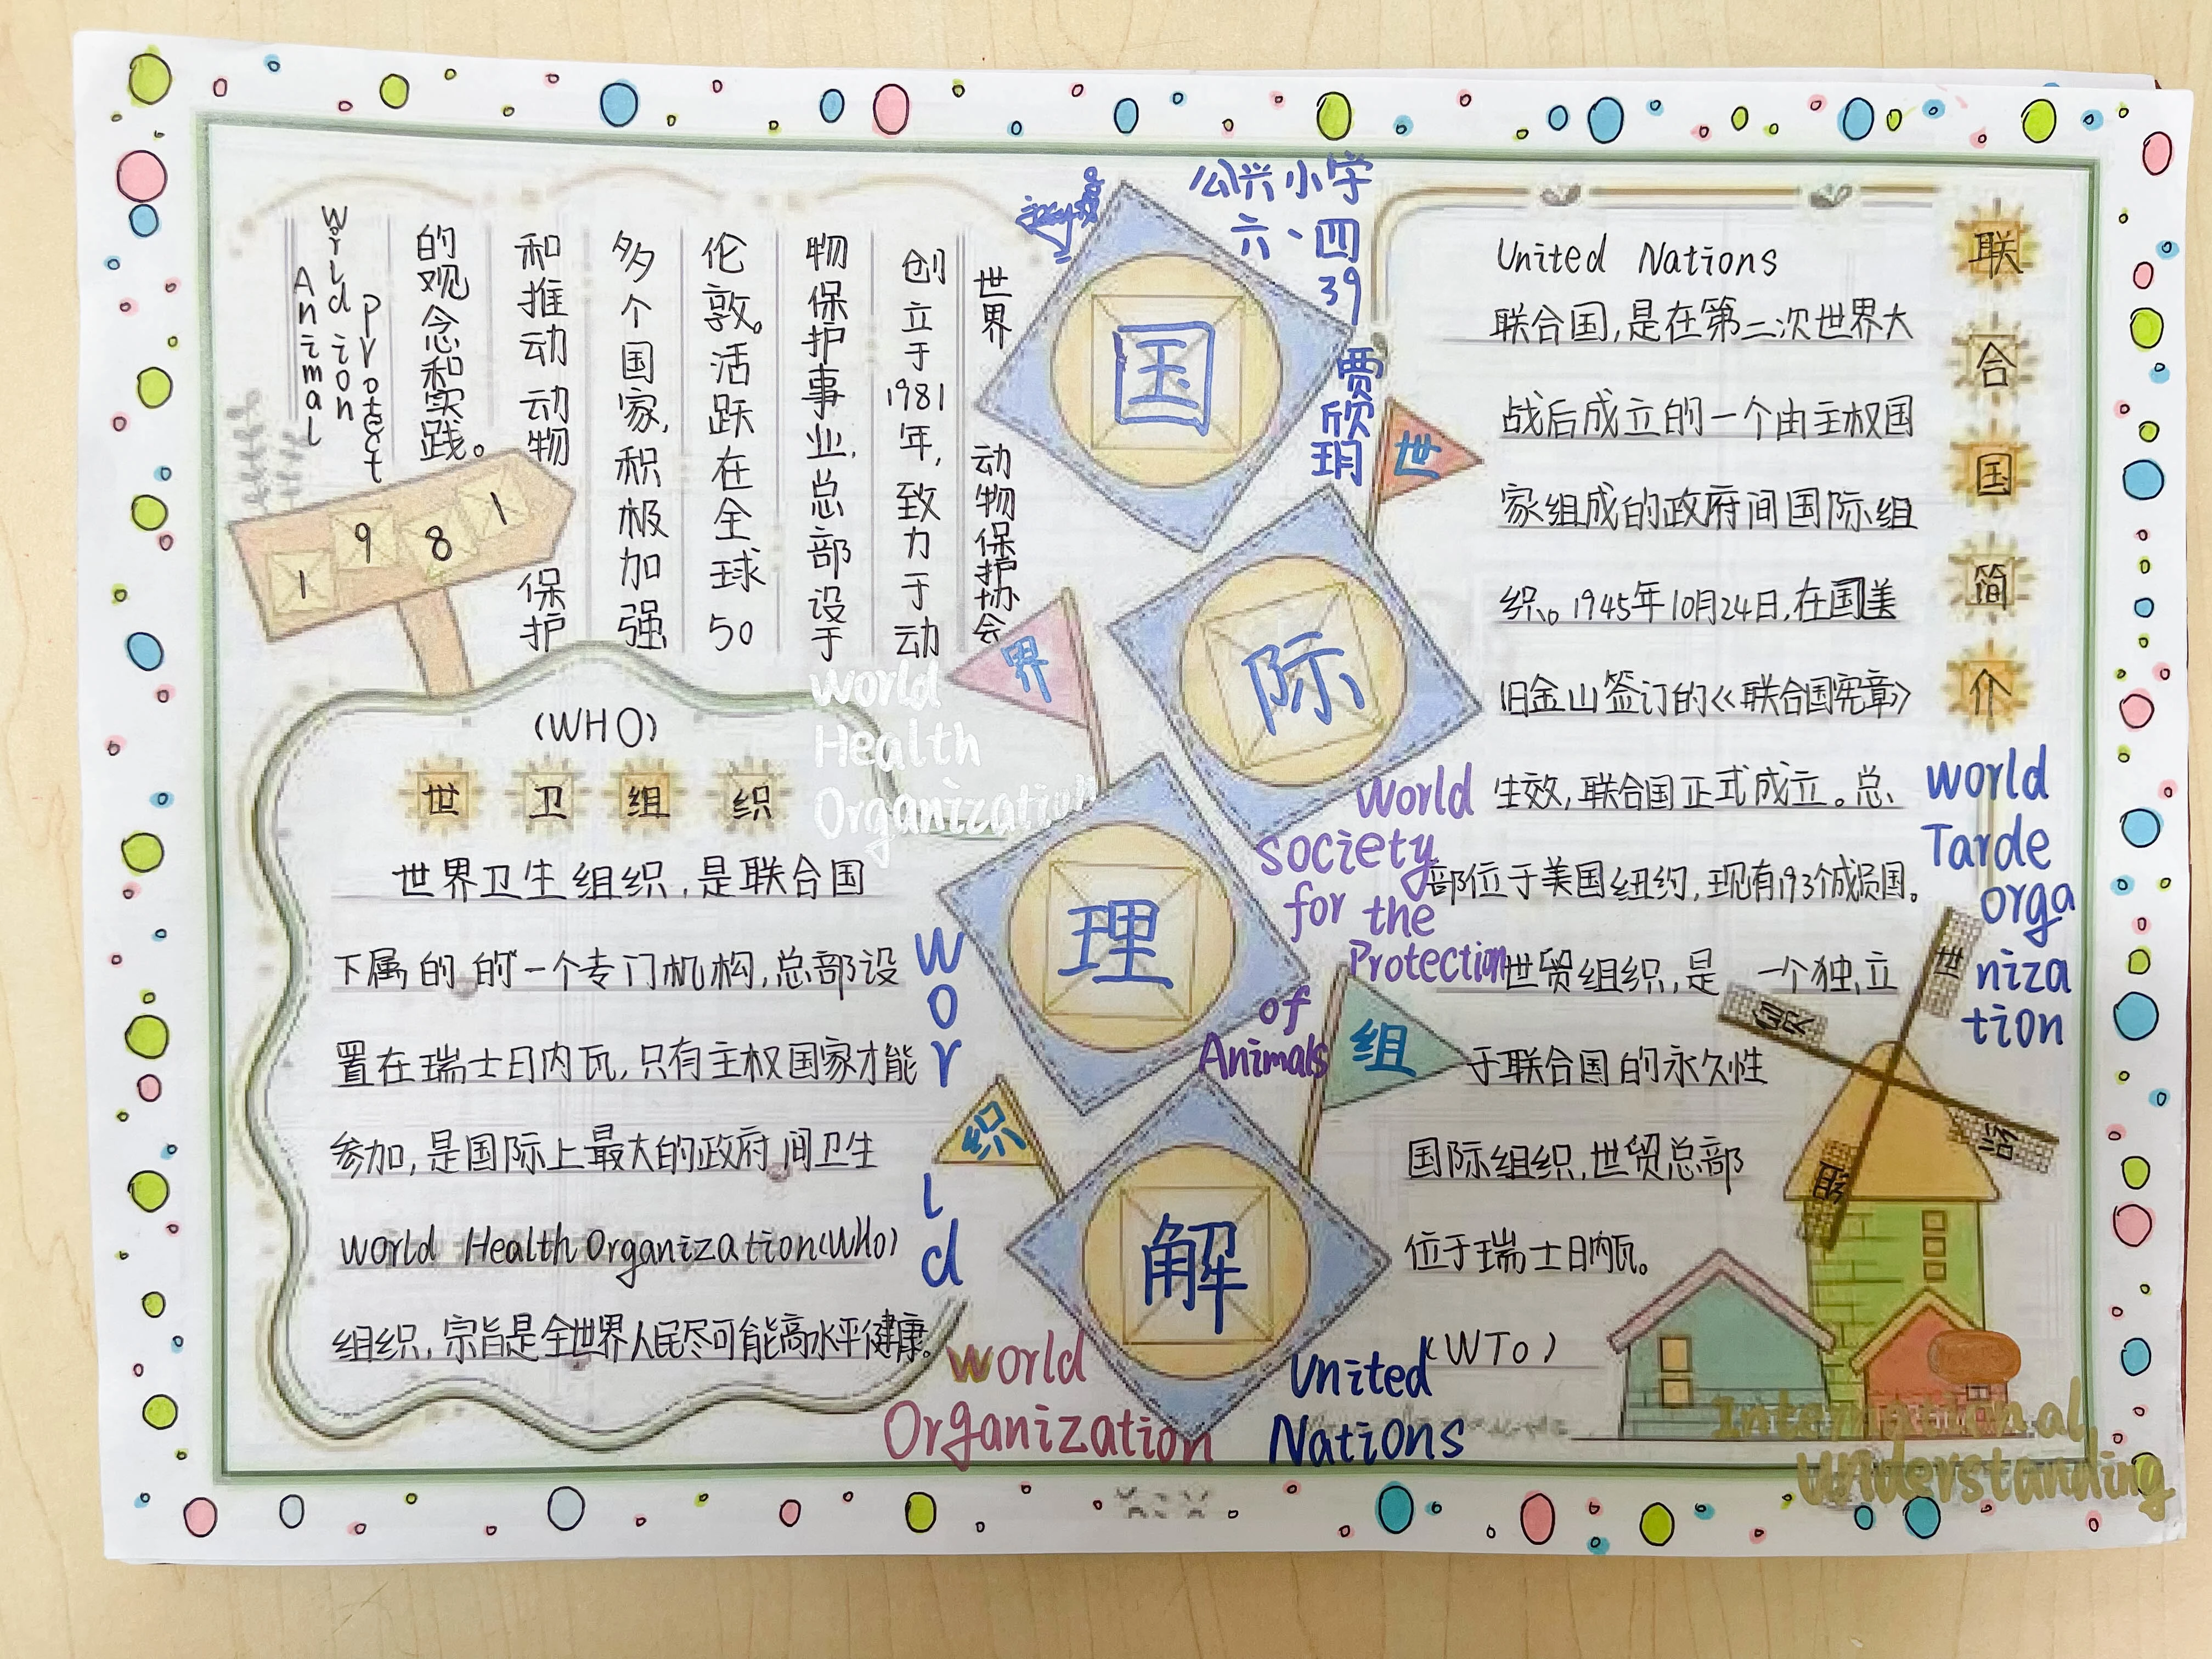 公兴小学
六、四
39
贾欣玥
国
际
理
解
世
界
组
织
世界 动物保护协会
创立于1981年,致力于动
物保护事业,总部设于
伦敦。活跃在全球50
多个国家,积极加强
和推动动物 保护
的观念和实践。
World
Animal
Protect
ion
1981
World
Health
Organization
(WHO)
世卫组织
世界卫生组织,是联合国
下属的的一个专门机构,总部设
置在瑞士日内瓦,只有主权国家才能
参加,是国际上最大的政府间卫生
World Health Organization(WHO)
组织,宗旨是全世界人民尽可能高水平健康。
World
World
Organization
United
Nations
World
society
for the
Protection
of
Animals
联合国简介
United Nations
联合国,是在第二次世界大
战后成立的一个由主权国
家组成的政府间国际组
织。1945年10月24日,在国美
旧金山签订的《联合国宪章》
生效,联合国正式成立。总
部位于美国纽约,现有193个成员国。
世贸组织,是一个独立
于联合国的永久性
国际组织,世贸总部
位于瑞士日内瓦。
(WTO)
World
Tarde
orga
niza
tion
世
贸
组
织
International
Understanding